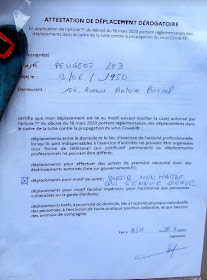 ATTESTATION DE DÉPLACEMENT DÉROGATOIRE
En application de l'article 1er du décret du 16 mars 2020 portant réglementation des
déplacements dans le cadre de la lutte contre la propagation du virus Covid-19 :
soussigné(e)
PEUGEOT 203
12/06/1950
Demeurant : 104, Avenue Antoine
certifie que mon déplacement est lié au motif suivant (cocher la case) autorisé par
l'article 1er du décret du 16 mars 2020 portant réglementation des déplacements dans
le cadre de la lutte contre la propagation du virus Covid-19 :
déplacements entre le domicile et le lieu d'exercice de l'activité professionnelle,
lorsqu'ils sont indispensables à l'exercice d'activités ne pouvant être organisées
sous forme de télétravail (sur justificatif permanent) ou déplacements
professionnels ne pouvant être différés;
déplacements pour effectuer des achats de première nécessité dans des
établissements autorisés (liste sur gouvernement.fr);
déplacements pour motif de santé; SORTIR MON MAÎTRE
QUI S'ENNUIE GRAVE
déplacements pour motif familial impérieux, pour l'assistance aux personnes
vulnérables ou la garde d'enfants;
déplacements brefs, à proximité du domicile, liés à l'activité physique individuelle
des personnes, à l'exclusion de toute pratique sportive collective, et aux besoins
des animaux de compagnie.